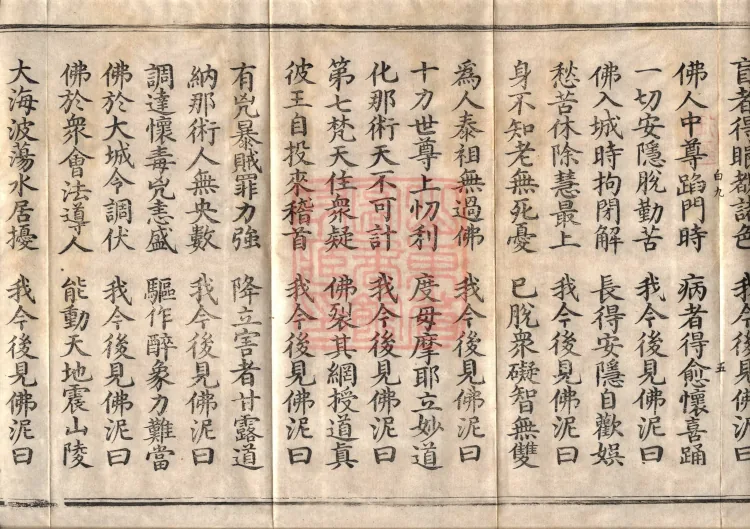 盲者得眼都諸色 我今後見佛泥曰
佛人中尊蹈門時 病者得愈懷喜踊
一切安隱脫勤苦 我今後見佛泥曰
白九
五
佛入城時拘閉解 長得安隱自歡娛
愁苦休除慧最上 我今後見佛泥曰
身不知老無死憂 已脫衆礙智無雙
爲人泰祖無過佛 我今後見佛泥曰
十力世尊上忉利 度母摩耶立妙道
化那術天不可計 我今後見佛泥曰
第七梵天住衆疑 佛裂其網授道真
彼王自投來稽首 我今後見佛泥曰
有兇暴賊罪力強 降立害者甘露道
納那術人無央數 我今後見佛泥曰
調達懷毒兇恚盛 驅作醉象力難當
佛於大城今調伏 我今後見佛泥曰
佛於衆會法導人 能動天地震山陵
大海波蕩水居擾 我今後見佛泥曰